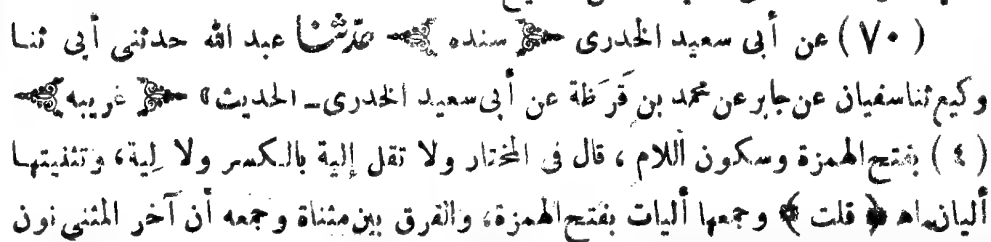 (٧٠) عن أبى سعيد الخدرى ﴿ سنده ﴾ حدثنا عبد الله حدثنى أبى ثنا
وكيع ثنا سفيان عن جابر عن محمد بن قَرَظة عن أبى سعيد الخدرى ـ الحديث» ﴿ غريبه ﴾
(٤) بفتح الهمزة وسكون اللام، قال فى المختار ولا تقل إلية بالكسر ولا لِية، وتثنيتها
أليان، اه ﴿ قلت ﴾ وجمعها أليات بفتح الهمزة، والفرق بين مثناة وجمعه أن آخر المثنى نون